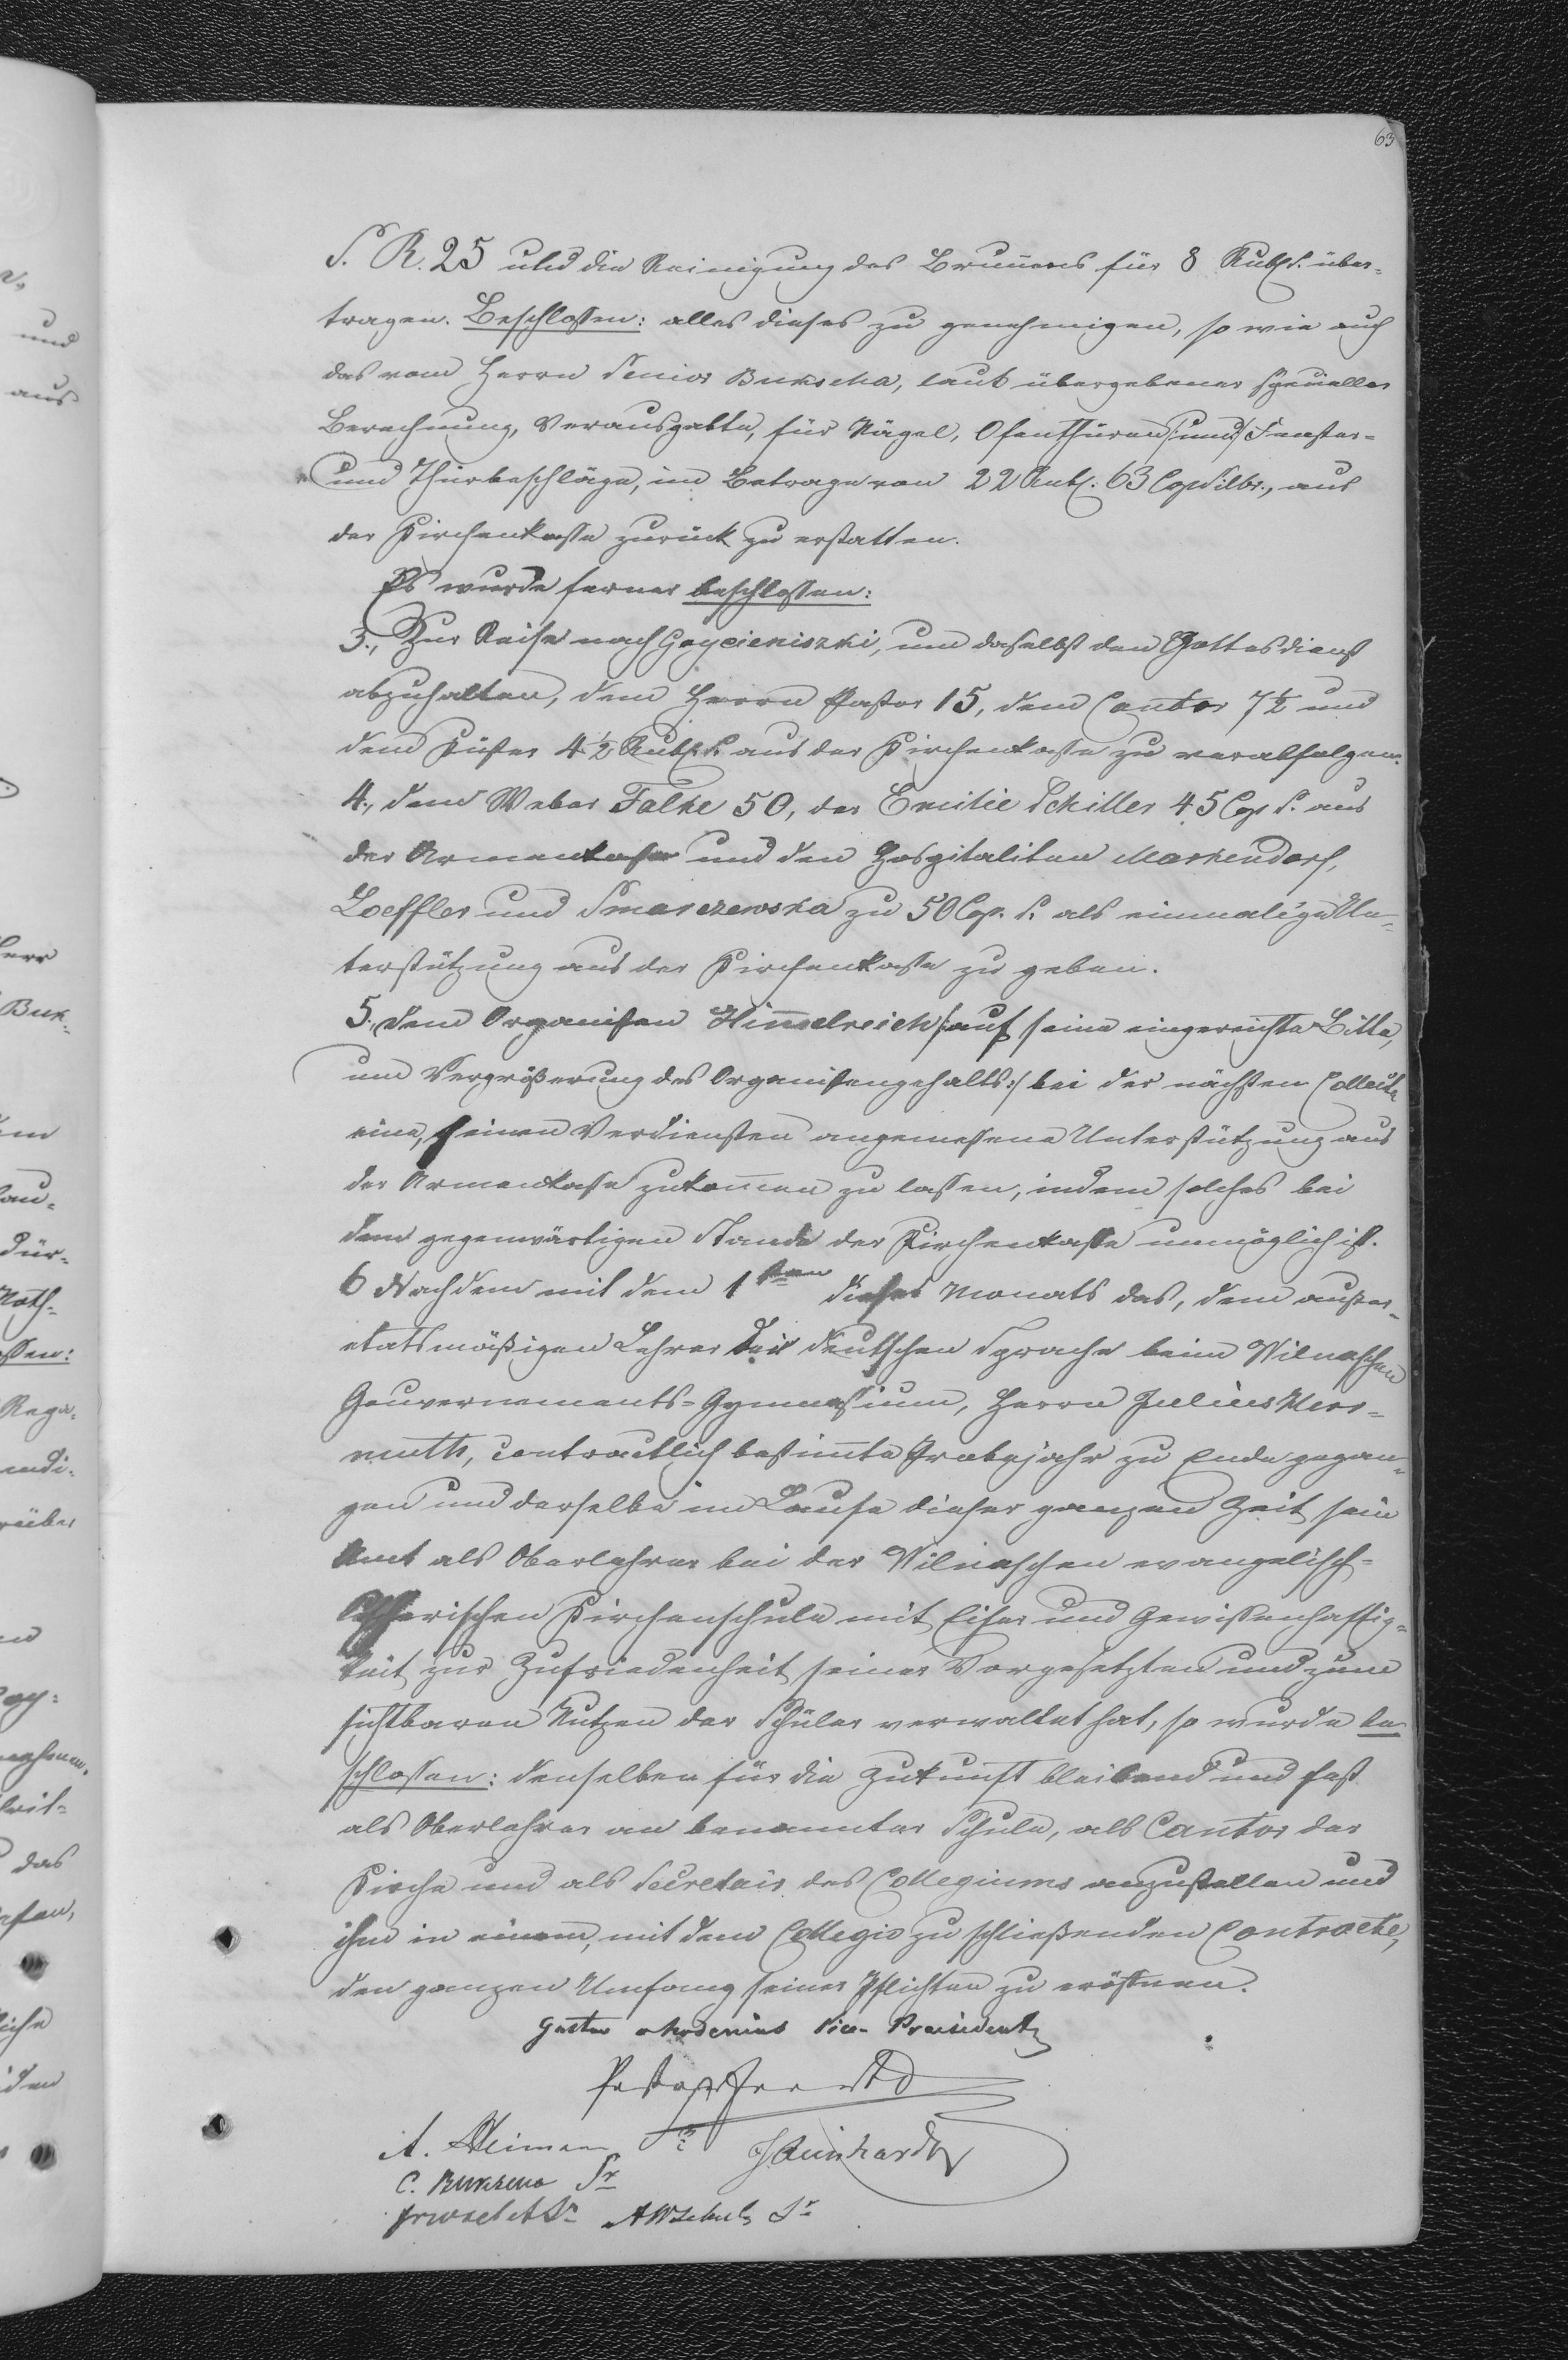 63
S. R. 25 und die Reinigung des Brunnens für 8 Rub. S. über-
tragen. Beschlossen: alles dieses zu genehmigen, so wie auch
das vom Herrn Senior Bukscha, laut übergebener specieller
Berechnung, Verausgabte, für Nägel, Ofenthüren /:und/ Fenster-
und Thürbeschläge, im Betrage von 22 Rub. 63 Cop Silbr., aus
der Kirchenkasse zurück zu erstatten.
Es wurde ferner beschlossen:
3., Zur Reise nach Gaycieniszki, um daselbst den Gottesdienst
abzuhalten, dem Herrn Pastor 15, dem Cantor 7½ und
dem Küster 4½ Rub. S. aus der Kirchenkasse zu verabfolgen.
4., dem Weber Falke 50, der Emilie Schiller 45 Cop S. aus
der Armenkasse und den Hospitaliten Markendorf,
Loeffler und Smarczewska zu 50 Cop. S. als einmalige Un-
terstützung aus der Kirchenkasse zu geben.
5., dem Organisten Him̅elreich /:auf seine eingereichte Bitte,
um Vergrößerung des Organistengehalts:/ bei der nächsten Collecte
eine, seinen Verdiensten angemessene Unterstützung aus
der Armenkasse zukom̅en zu lassen, indem solches bei
dem gegenwärtigen Stande der Kirchenkasse unmöglich ist.
6 Nachdem mit dem 1sten dieses Monats das, dem außer-
etatsmäßigen Lehrer der deutschen Sprache beim Wilnaschen
Gouvernements-Gymnasium, Herrn Julius
contractlich bestim̅te Probejahr zu Ende gegan-
gen und derselbe im Laufe dieser ganzen Zeit sein
Amt als Oberlehrer bei der Wilnaschen evangelisch-
lutherischen Kirchenschule mit Eifer und Gewissenhaftig-
keit zur Zufriedenheit seiner Vorgesetzten und zum
sichtbaren Nutzen der Schüler verwaltet hat, so wurde be-
schlossen: denselben für die Zukunft bleibend und fest
als Oberlehrer an benannter Schule, als Cantor der
Kirche und als Secretair des Collegiums anzustellen und
ihm in einem, mit dem Collegio zu schließenden Contracte,
den ganzen Umfang seiner Pflichten zu eröffnen.
Gustav Vice-Praesident
Pastor
A. Reinhardt
C. Bukscha Sr
A W Schulz Sr